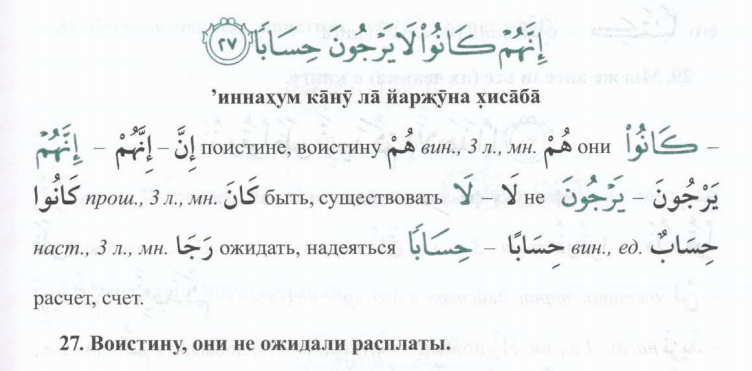 إِنَّهُمْ كَانُوا۟ لَا يَرْجُونَ حِسَابًا ﴿٢٧﴾
’иннахум кāнӯ лā йарж̌ӯна хисāбā
إِنَّهُمْ – إِنَّهُمْ – إِنَّ поистине, воистину هُمْ вин., 3 л., мн. هُمْ они كَانُوا۟ –
كَانُوا прош., 3 л., мн. كَانَ быть, существовать لَا – لَا не يَرْجُونَ – يَرْجُونَ
наст., 3 л., мн. رَجَا ожидать, надеяться حِسَابًا – حِسَابًا вин., ед. حِسَابٌ
расчет, счет.
27. Воистину, они не ожидали расплаты.